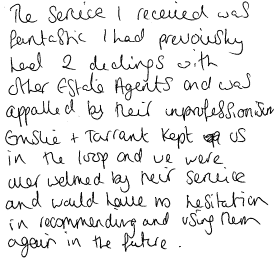 The Service I received was
fantastic I had previously
had 2 dealings with
other Estate Agents and was
appalled by their unprofessionism
Emslie + Tarrant Kept us
in the loop and we were
over welmed by their service
and would have no hesitation
in recommending and using them
again in the future.